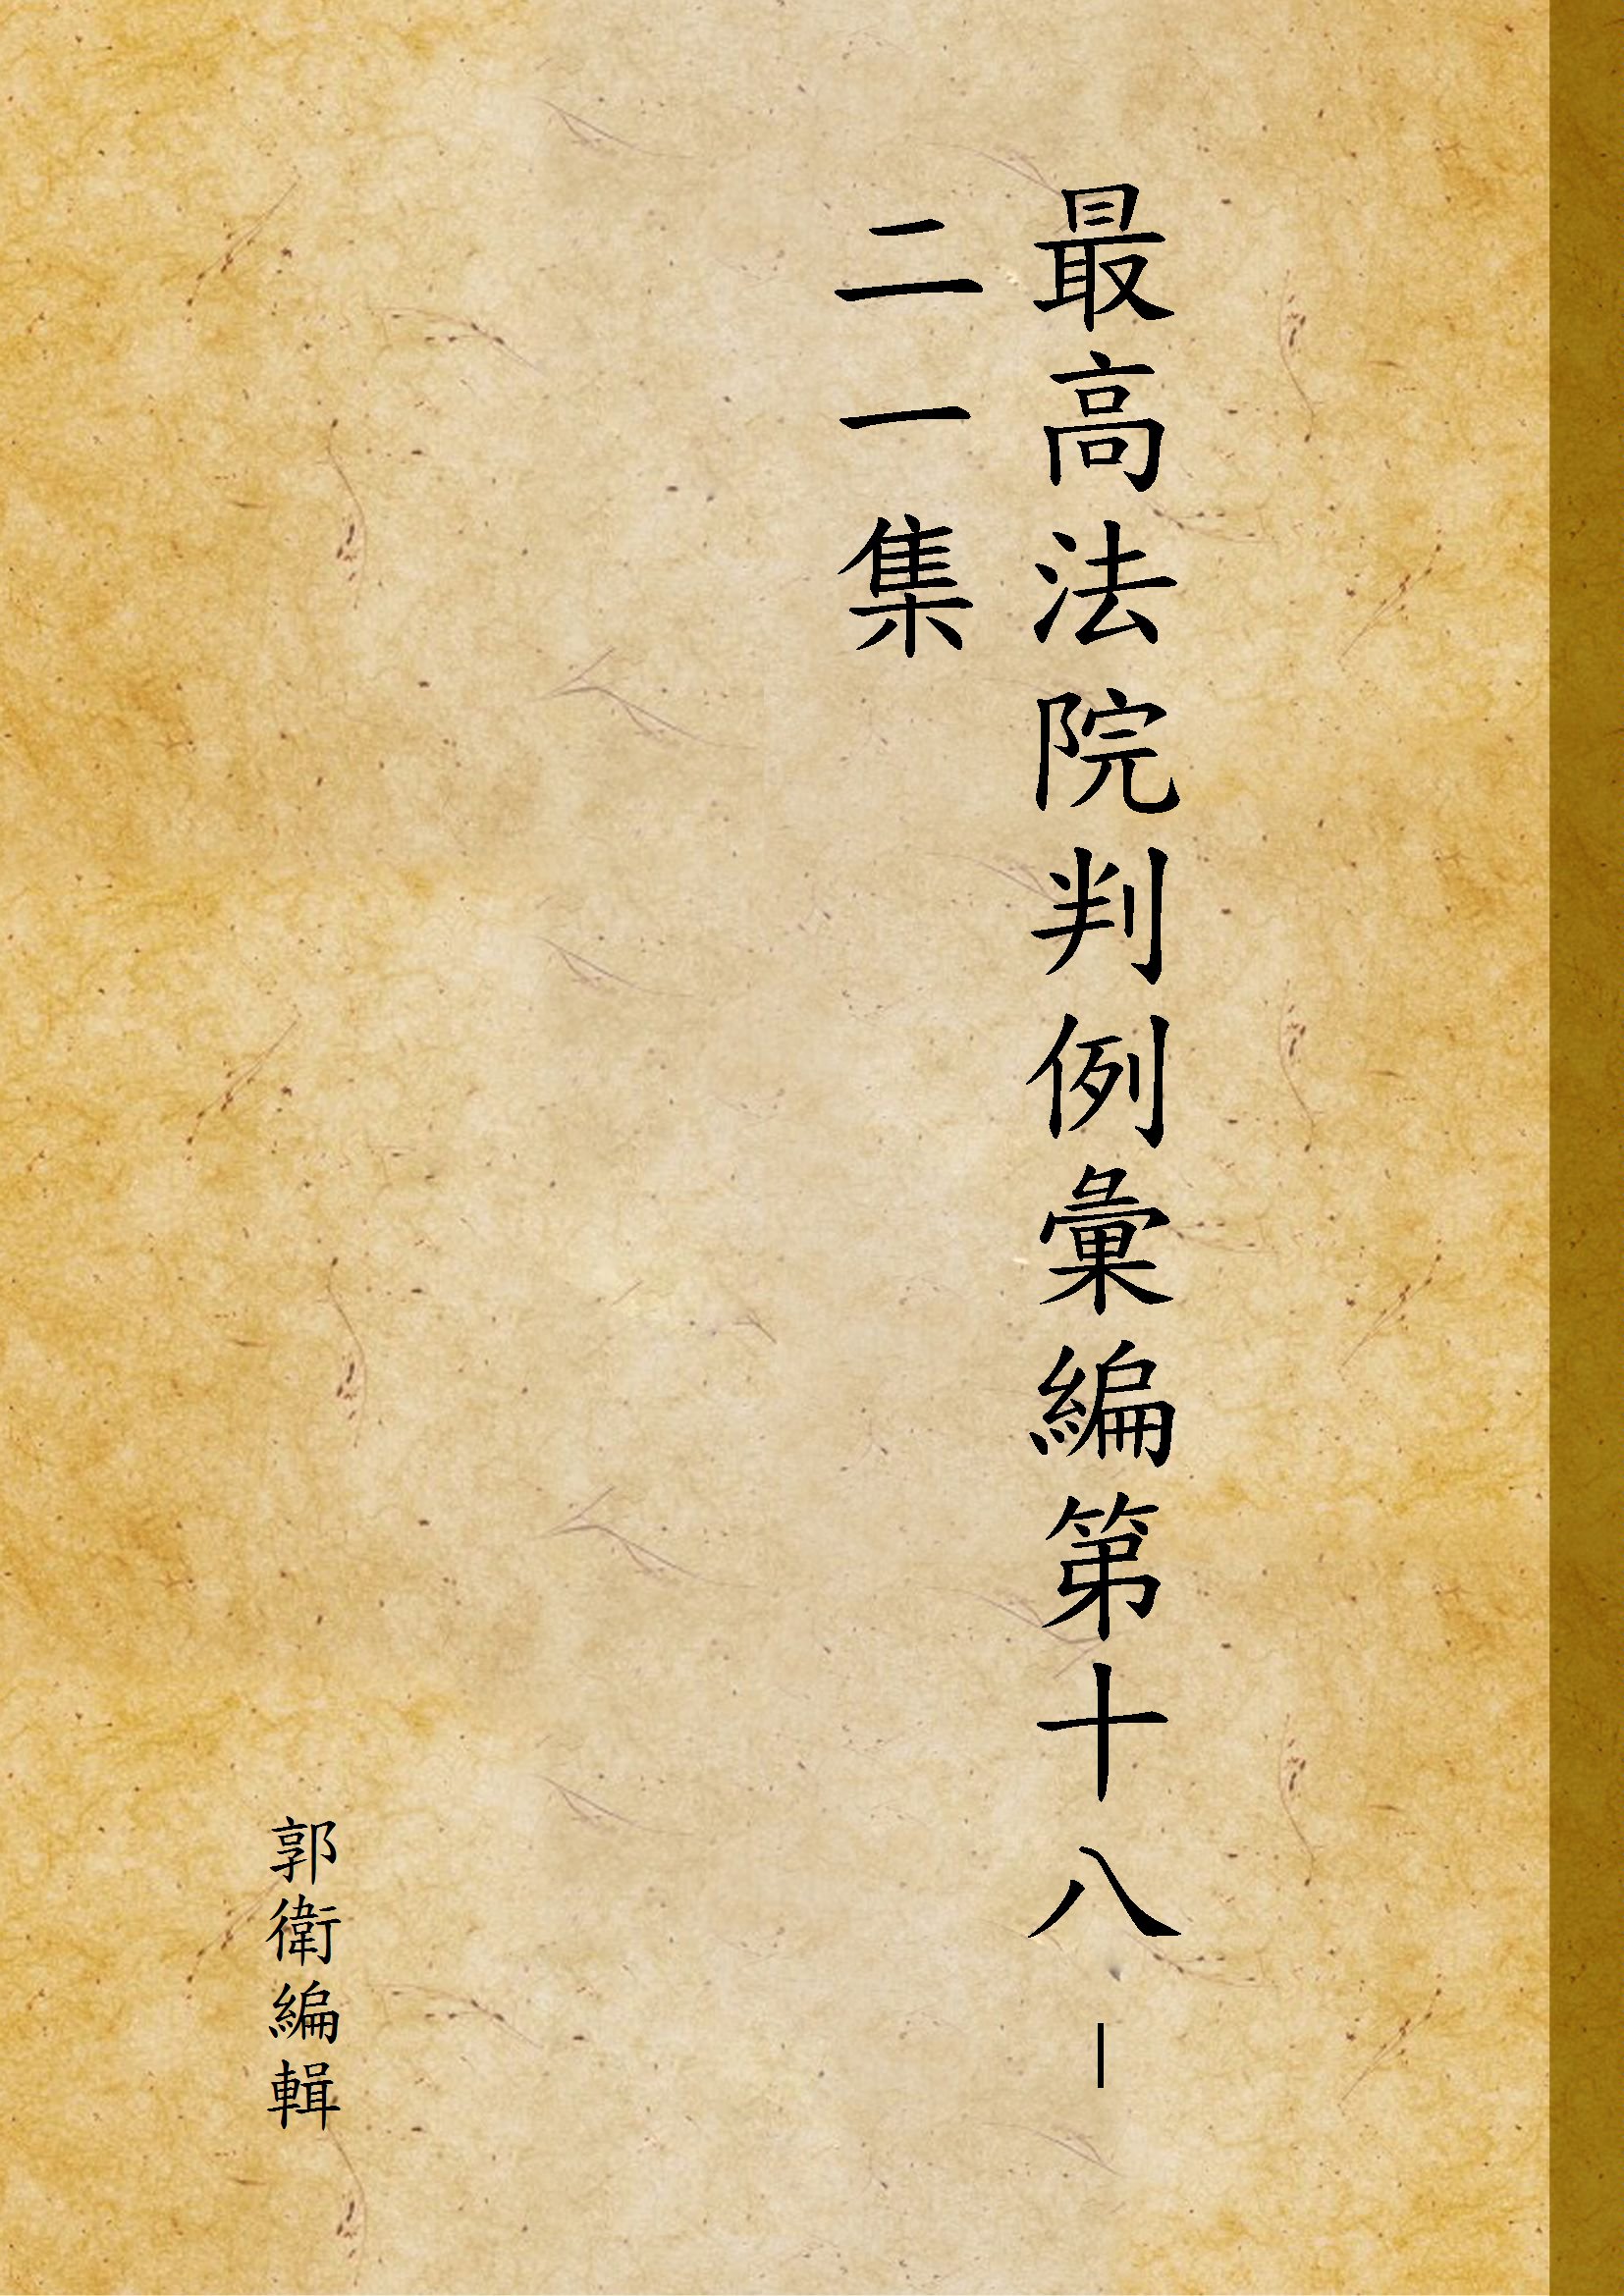 最高法院判例彙編第十八－
二一集
郭衛編輯